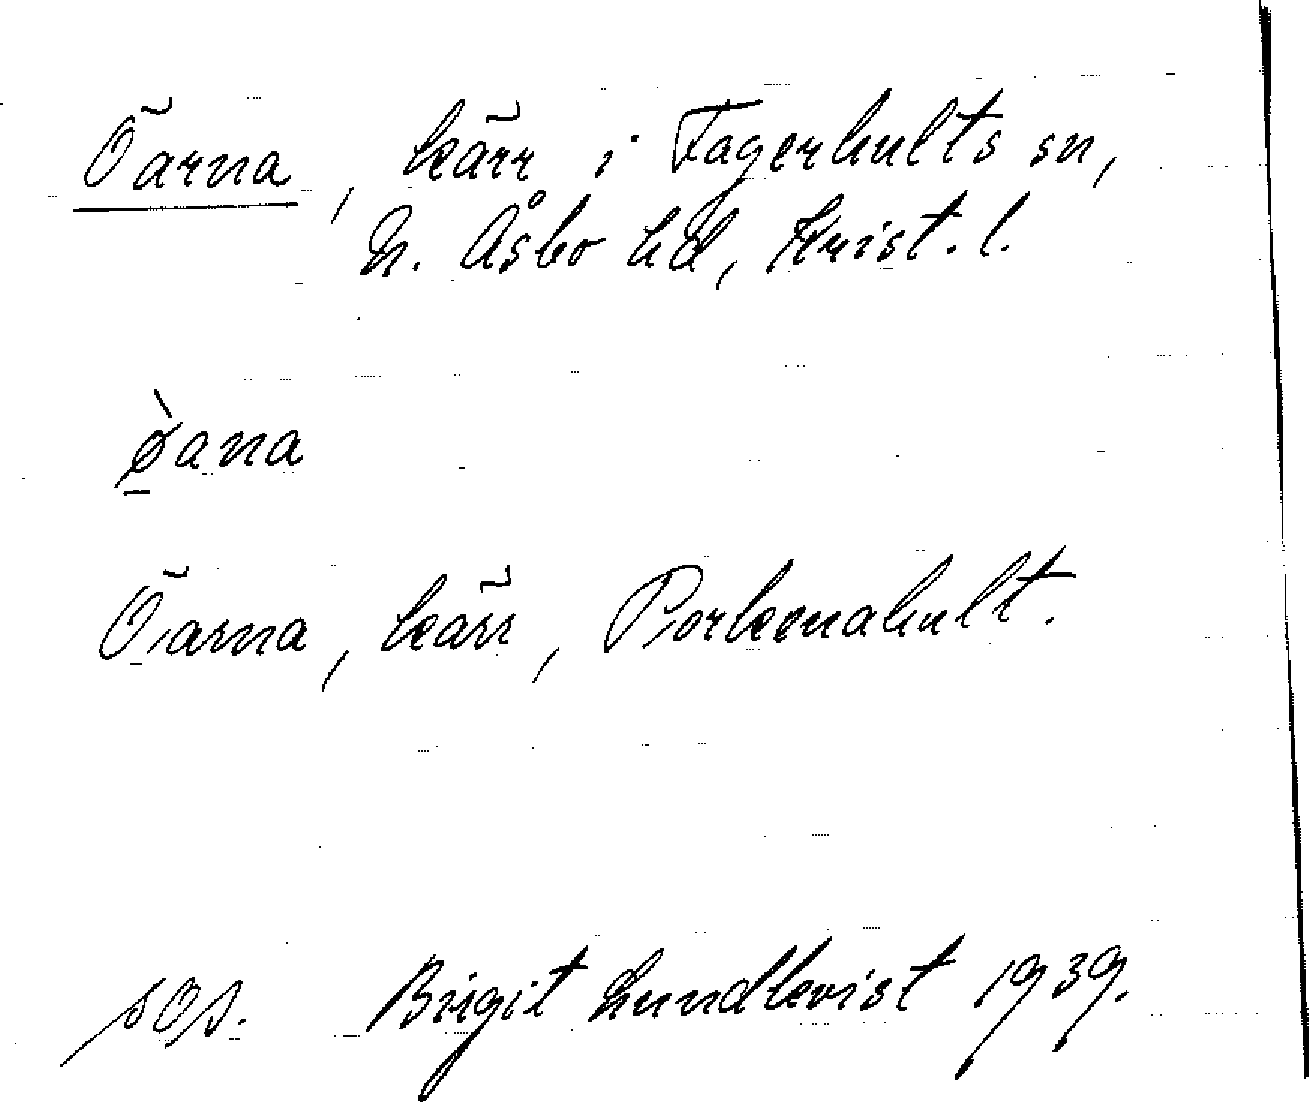 Öarna, kärr i Fagerhults sn,
N. Åsbo hd, Krist. l.
ø̀ana
Öarna, kärr, Porkenahult.
Birgit Lundkvist 1939.